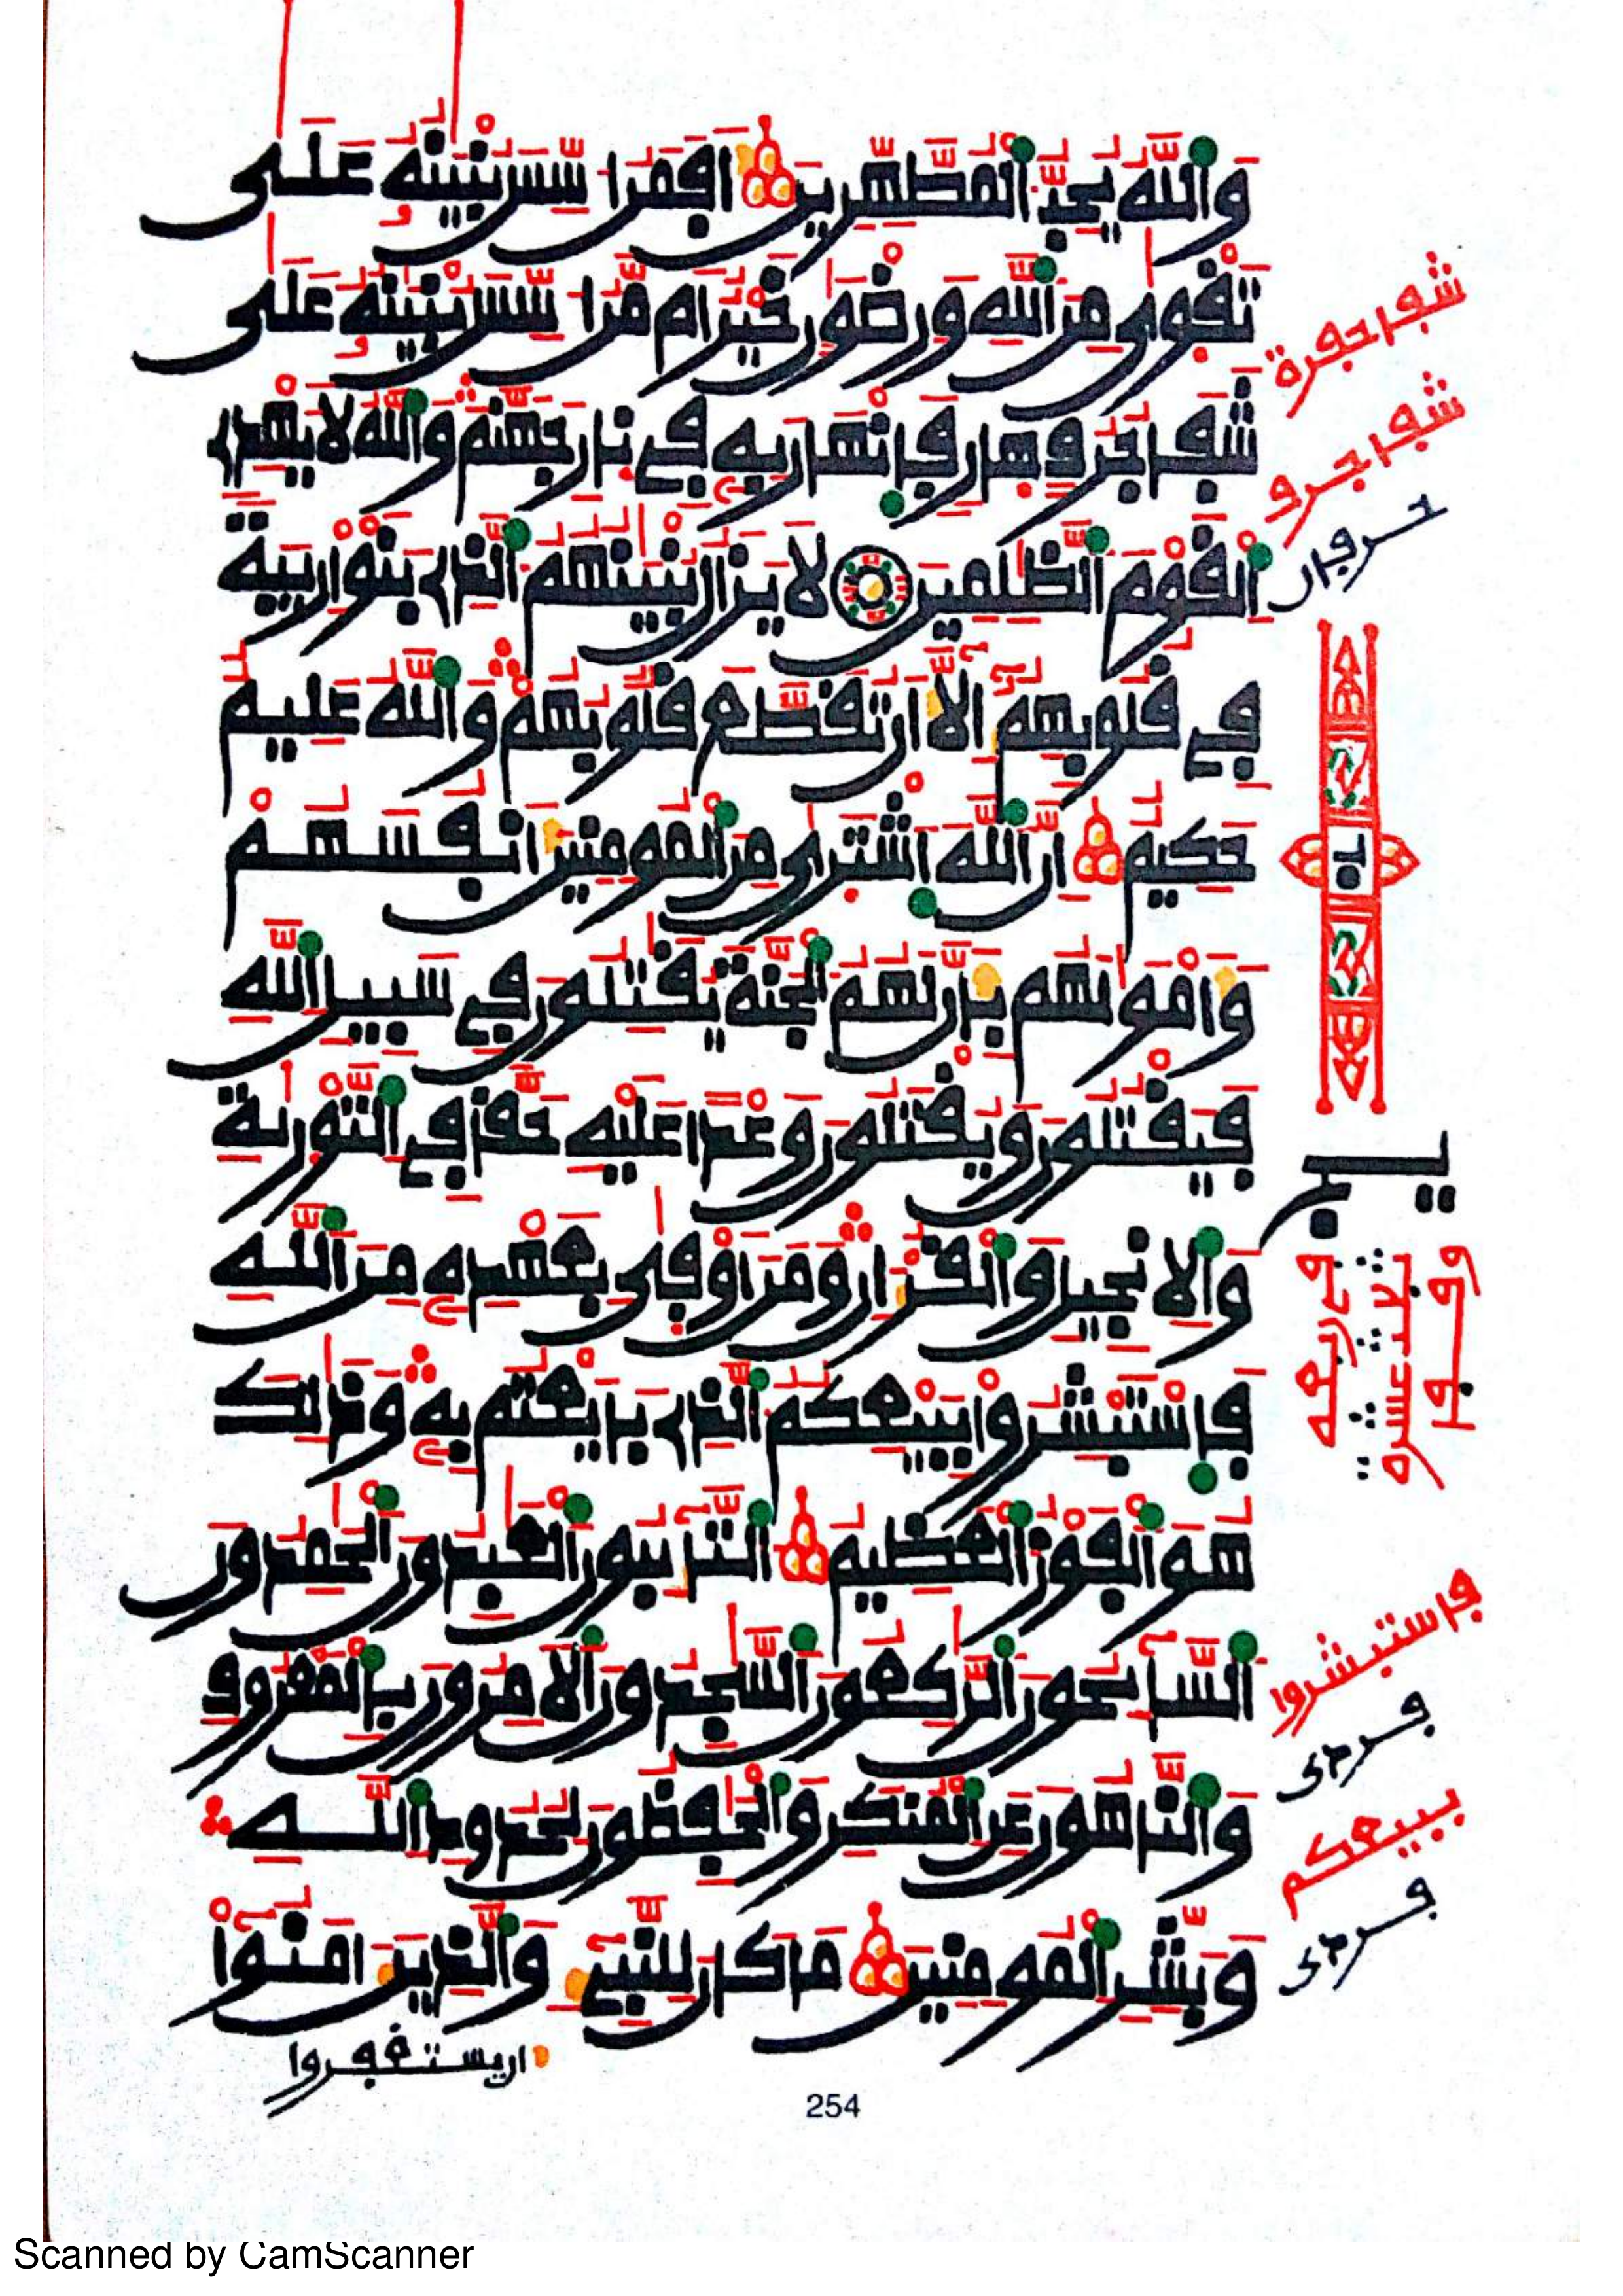 والله يحب المطهرين افمن اسس بنينه على
تقوى من الله ورضون خير ام من اسس بنينه على
شفا جرف هار فانهار به في نار جهنم والله لا يهدي
القوم الظلمين لا يزال بنينهم الذي بنوا ريبة
في قلوبهم الا ان تقطع قلوبهم والله عليم
حكيم ان الله اشترى من المومنين انفسهم
وامولهم بان لهم الجنة يقتلون في سبيل الله
فيقتلون ويقتلون وعدا عليه حقا في التورية
والانجيل والقران ومن اوفى بعهده من الله
فاستبشروا ببيعكم الذي بايعتم به وذلك
هو الفوز العظيم التئبون العبدون الحمدون
السئحون الركعون السجدون الامرون بالمعروف
والناهون عن المنكر والحفظون لحدود الله
وبشر المومنين ما كان للنبيء والذين امنوا
ان يستغفروا
شفا حفرة
شفا جرف
فاستبشروا
ببيعكم
254
Scanned by CamScanner